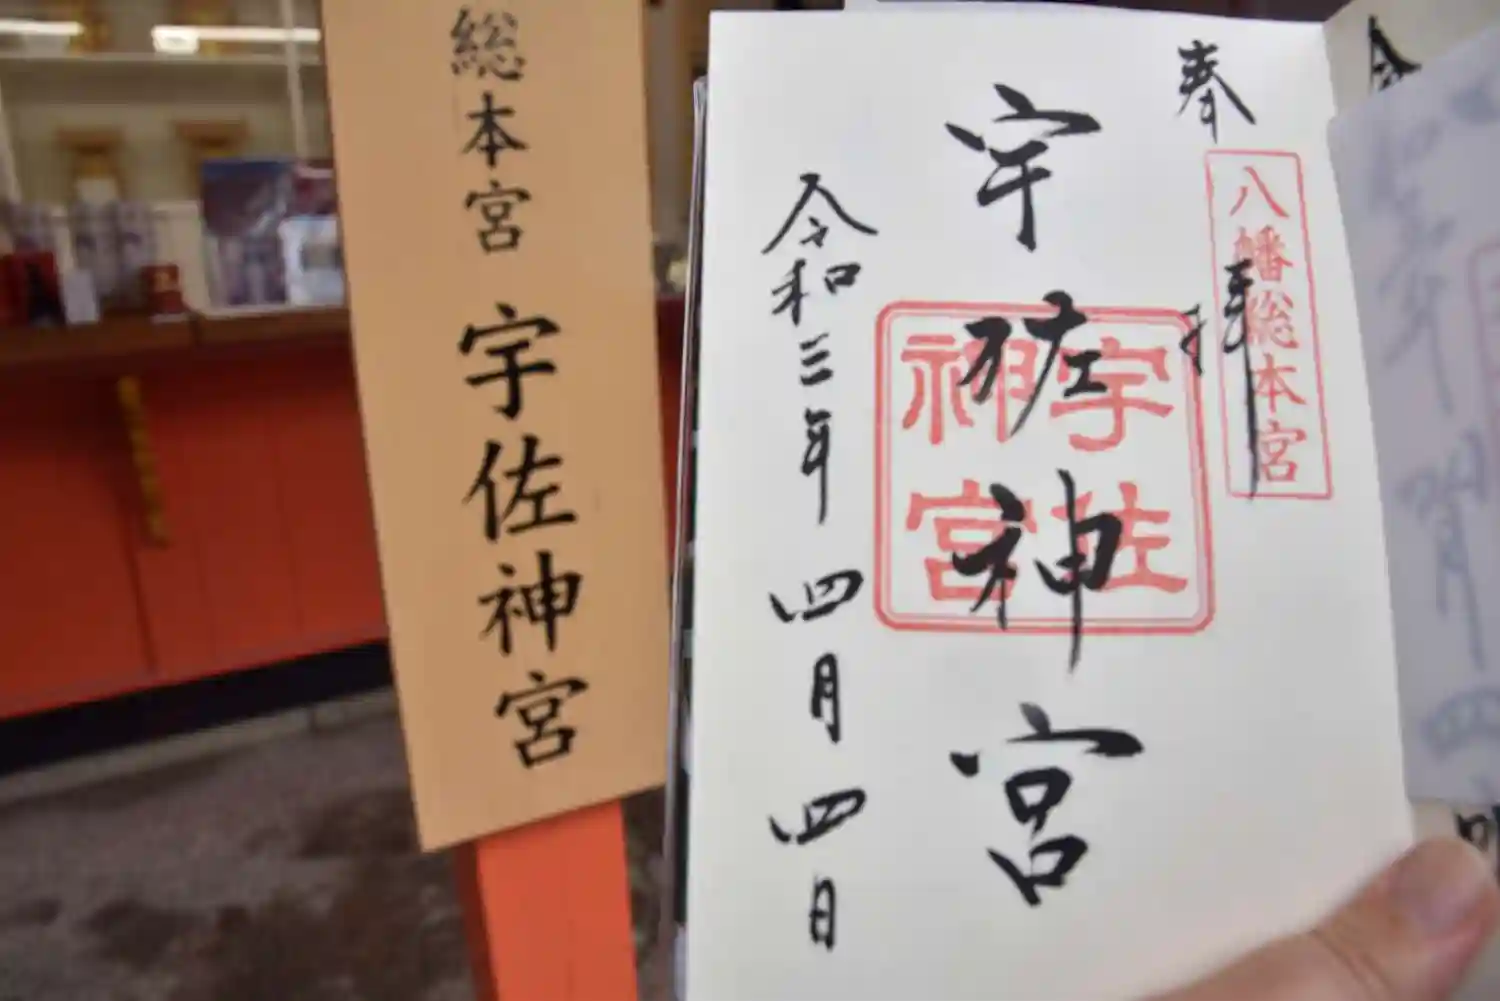 総本宮 宇佐神宮
奉拝
八幡総本宮
宇佐神宮
宇佐神宮
令和三年四月四日